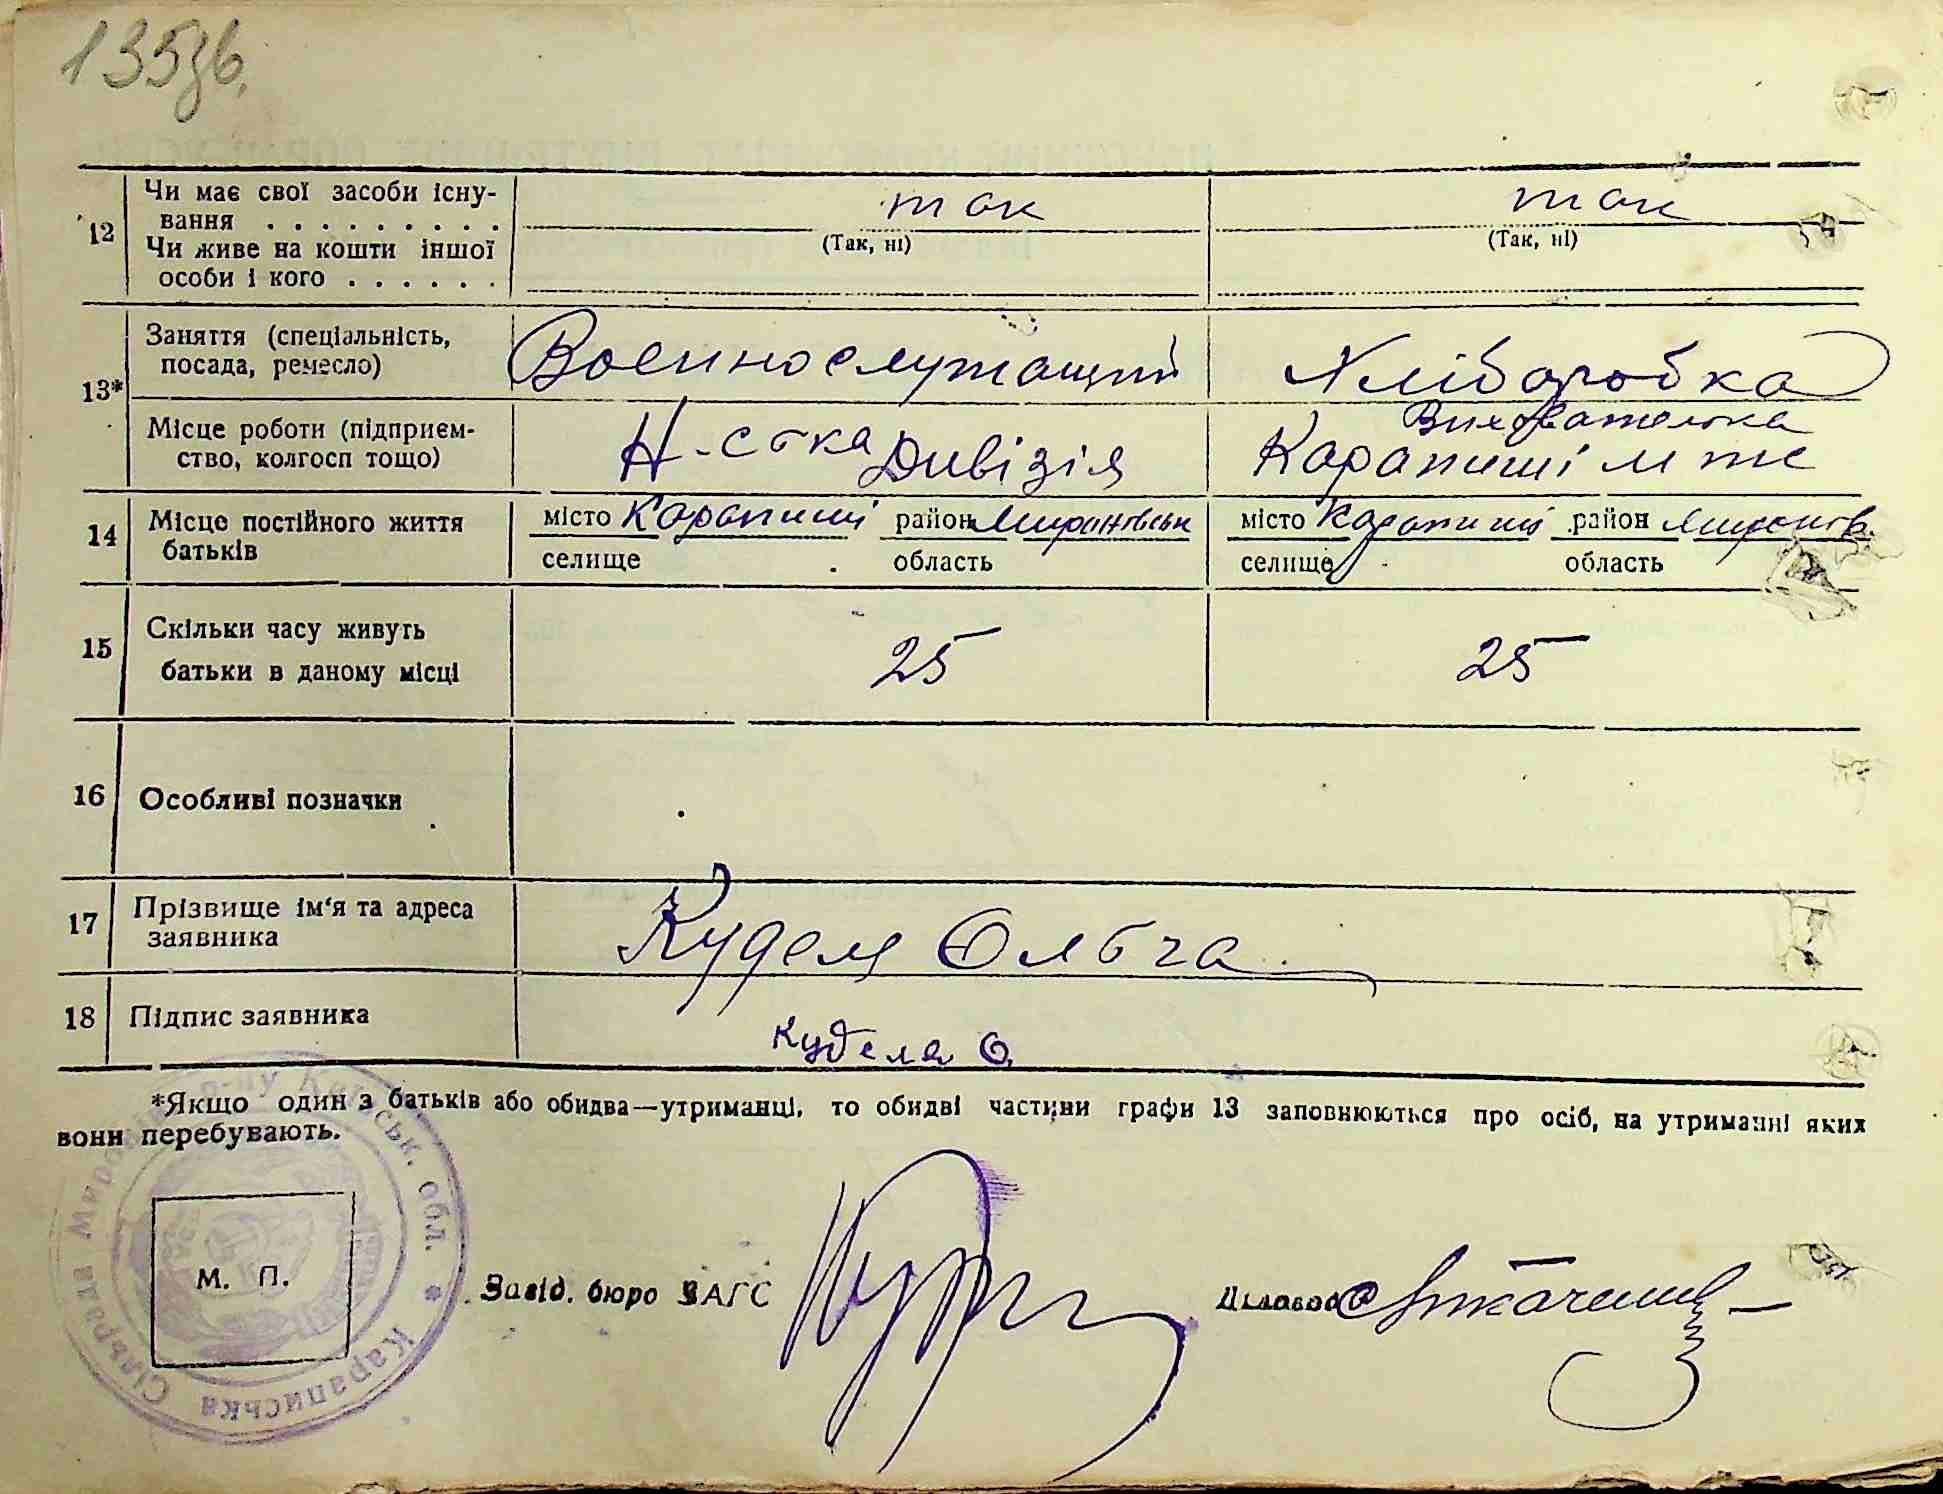 135зв.
12 Чи має свої засоби існу-
вання . . . . . . . . . так так
(Так, ні) (Так, ні)
Чи живе на кошти іншої
особи і кого . . . . . .
13* Заняття (спеціальність,
посада, ремесло) Военнослужащий Хліборобка
Вихователька
Місце роботи (підприєм-
ство, колгосп тощо) Дивізія Карапиші
14 Місце постійного життя
батьків місто Карапиші район Миронівськ місто Карапиші район Миронів.
селище область селище область
15 Скільки часу живуть
батьки в даному місці 25 25
16 Особливі позначки
17 Прізвище ім'я та адреса
заявника Кудели Ольга
18 Підпис заявника
Кудела О.
*Якщо один з батьків або обидва—утриманці, то обидві частини графи 13 заповнюються про осіб, на утриманні яких
вони перебувають.
М. П. Завід. бюро ЗАГС Діловод
Караписька Сільрада Миронівськ. р-ну Київськ. обл. *